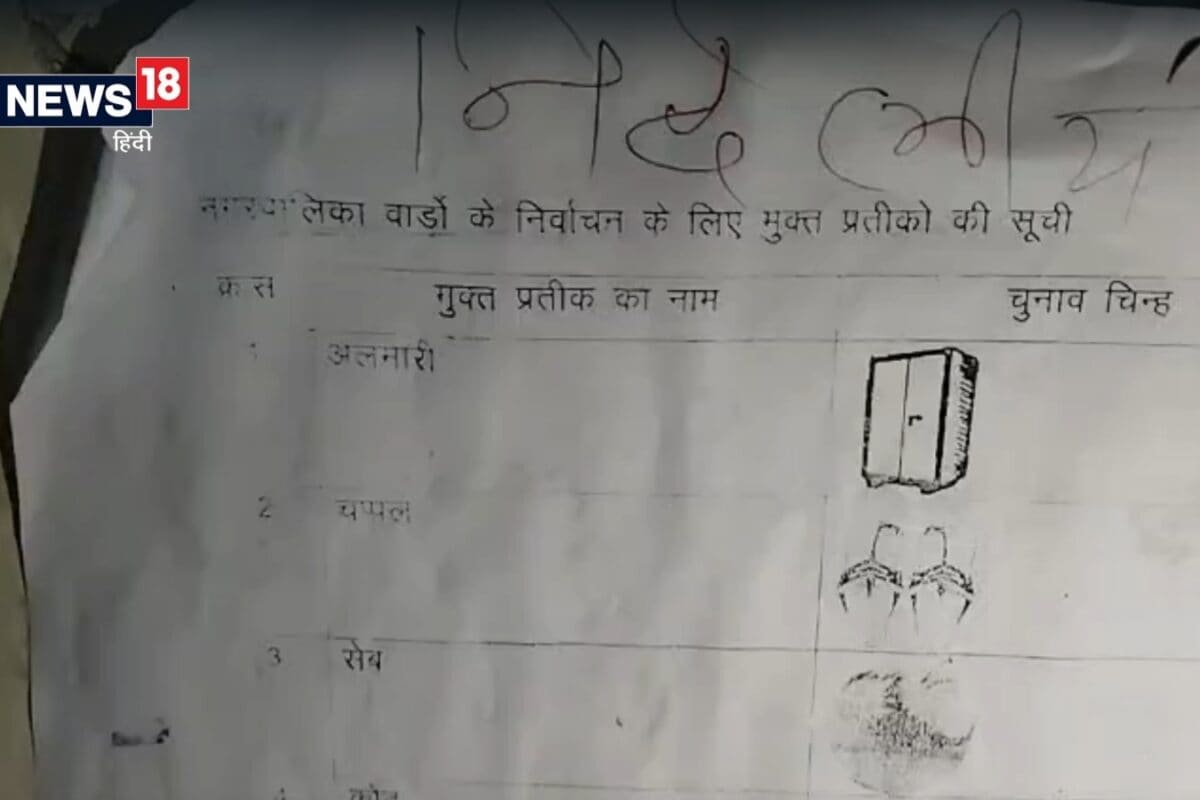 NEWS 18
हिंदी
निर्दलीय
नगरपालिका वार्डो के निर्वाचन के लिए मुक्त प्रतीको की सूची
क्र स मुक्त प्रतीक का नाम चुनाव चिन्ह
1 अलमारी
2 चप्पल
3 सेब
4